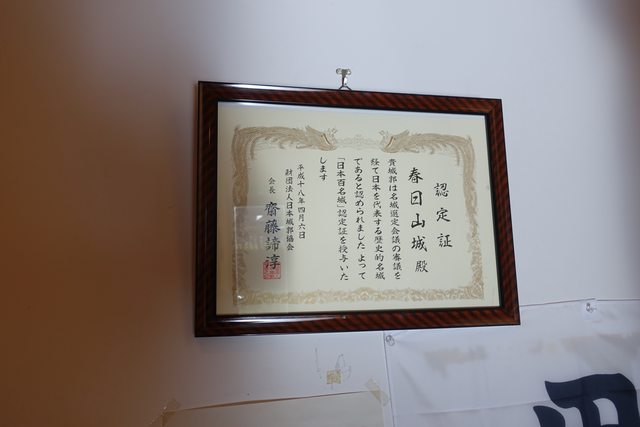 認定証
春日山城殿
貴城郭は名城選定会議の審議を
経て日本を代表する歴史的名城
であると認められました よって
「日本百名城」認定証を授与いた
します
平成十八年四月六日
財団法人日本城郭協会
会長 齋藤諦淳